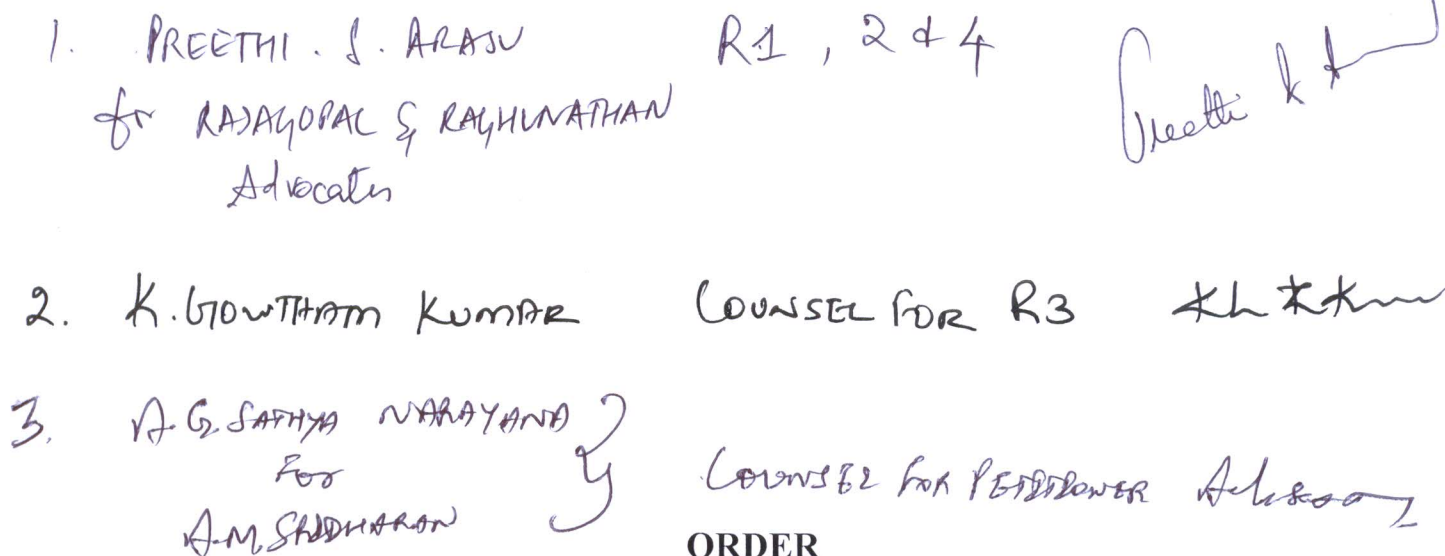 1. PREETHI . S. ARASU R1, 2 & 4
for RAJAGOPAL & RAGHUNATHAN
Advocates
2. K. GOWTHAM KUMAR COUNSEL FOR R3
3. A.G. SATHYA NARAYANA
For
A.M. SRIDHARAN
COUNSEL FOR PETITIONER
ORDER